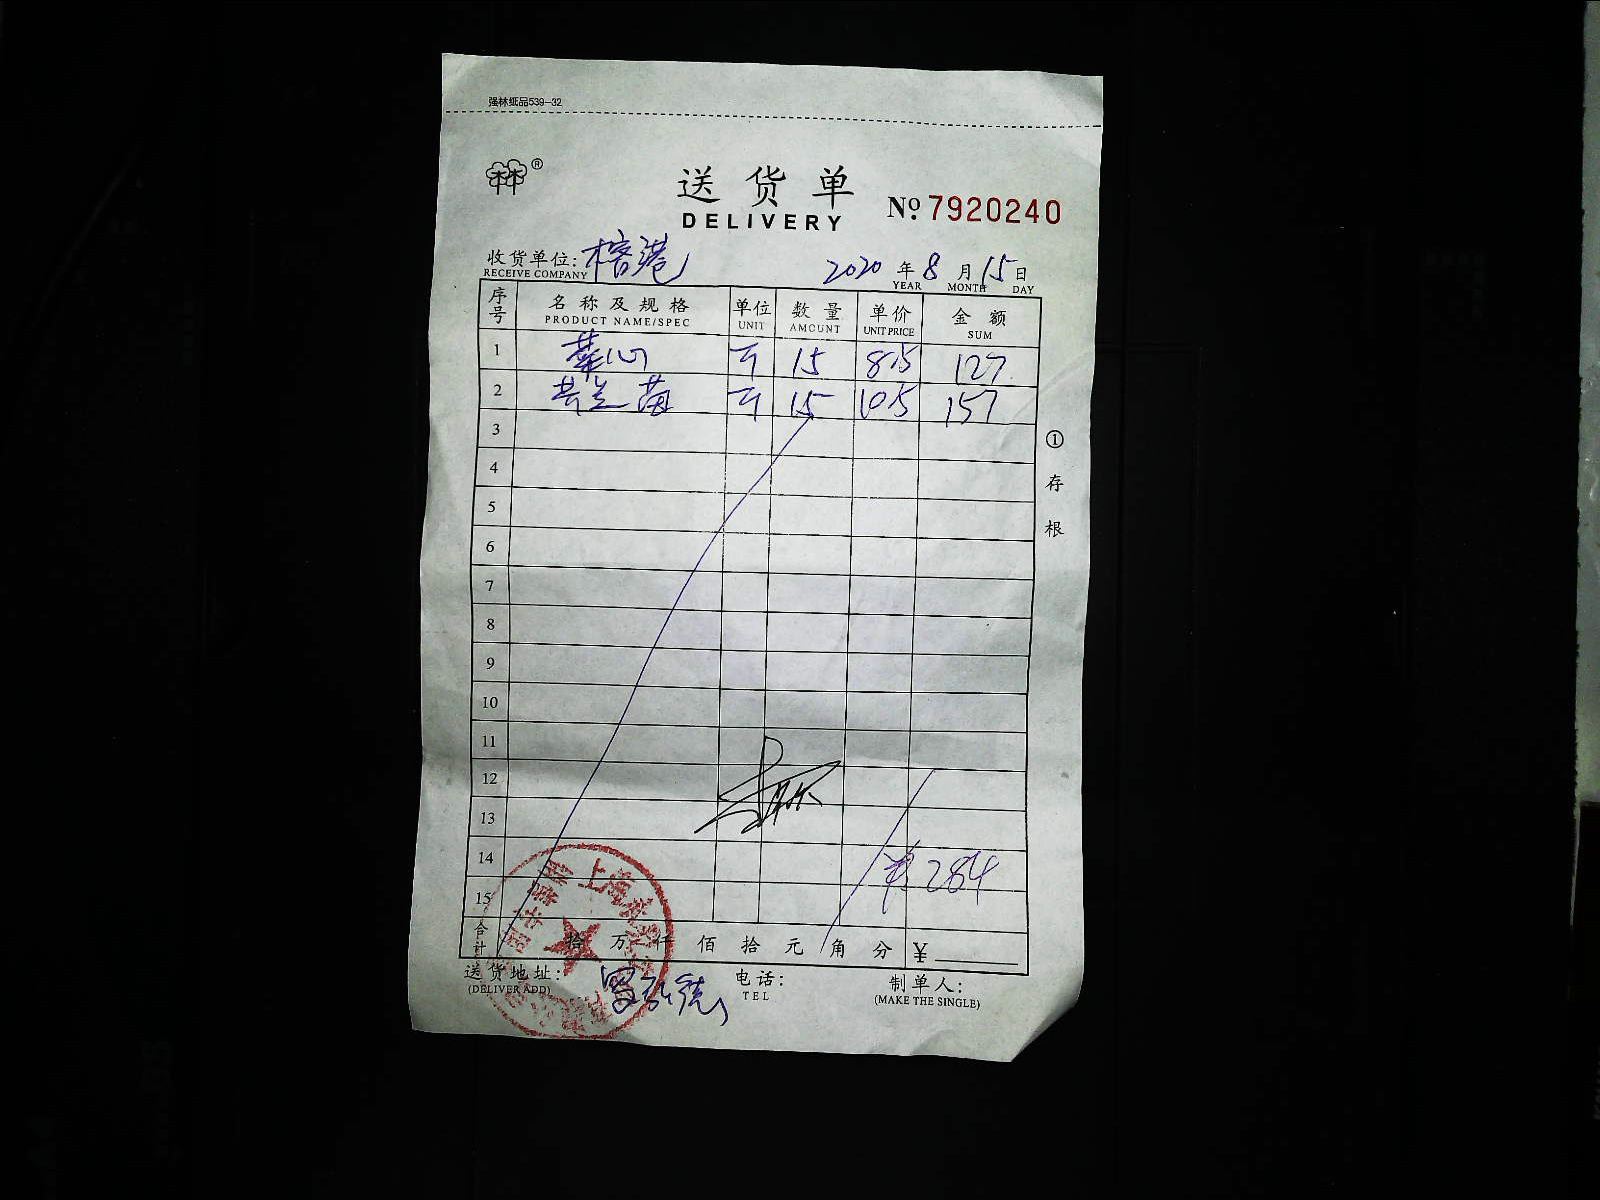 强林纸品539-32
®
送货单
DELIVERY
№ 7920240
收货单位: 榕港
RECEIVE COMPANY
2020 年 8 月 15 日
YEAR MONTH DAY
序号 名称及规格 单位 数量 单价 金额
PRODUCT NAME/SPEC UNIT AMOUNT UNIT PRICE SUM
1 15 8.5 127
2 15 10.5 157
3
4
5
6
7
8
9
10
11
12
13
14 ¥284
15
合计 拾 万 仟 佰 拾 元 角 分 ¥
① 存根
上海
送货地址:
(DELIVER ADD)
电话:
TEL
制单人:
(MAKE THE SINGLE)